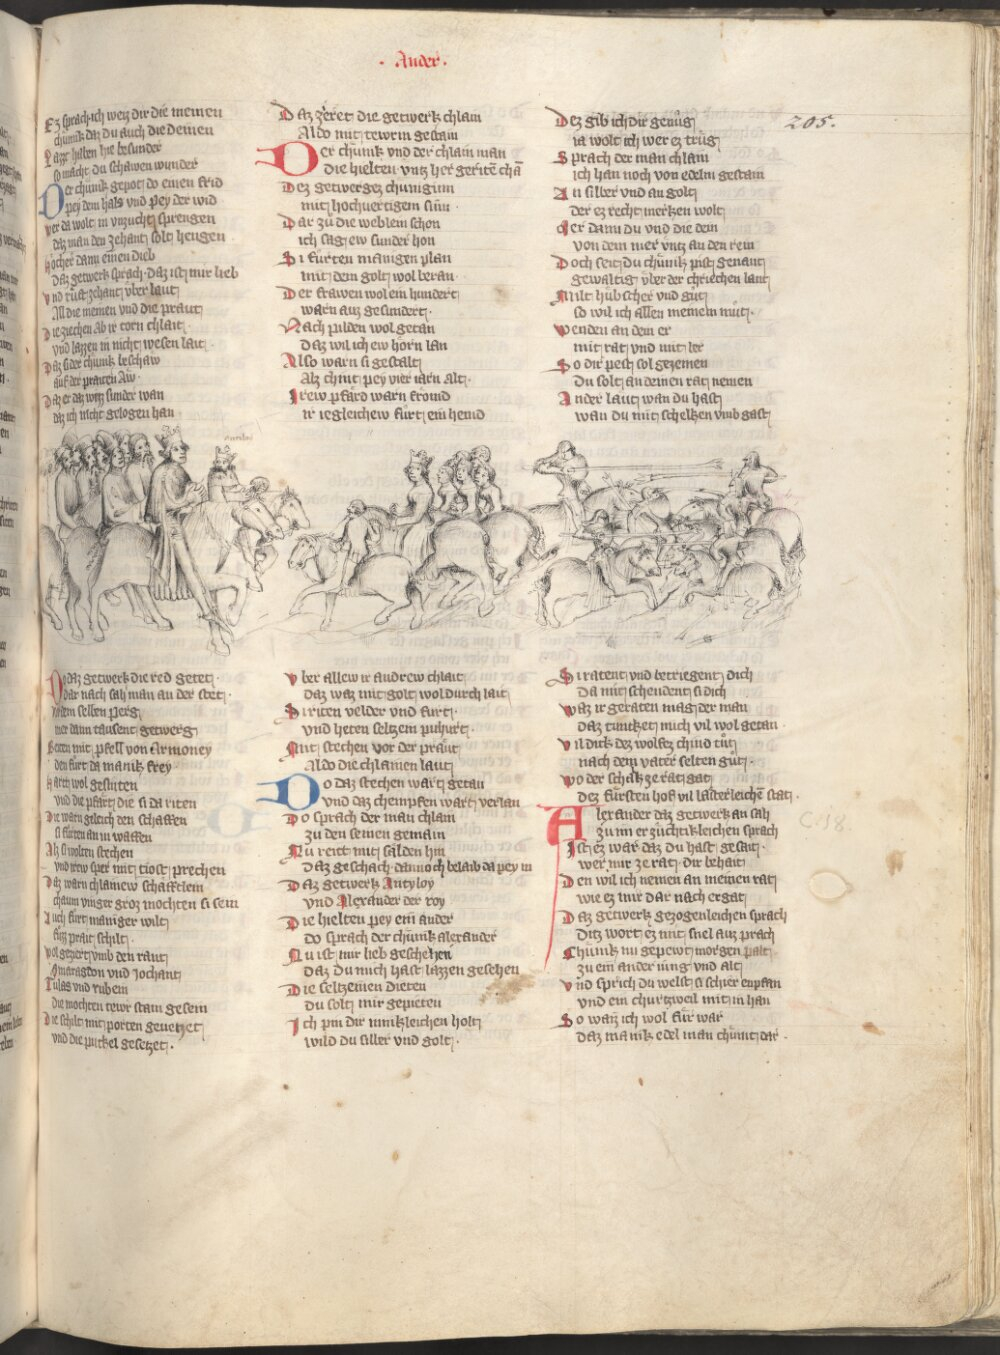 · Ander ·
205.
Ez sprach ich weiz dir die meinen
chunik daz du auch die deinen
hie besunder
so macht du schawen wunder
Der chunik gepot do einen frid
pey dem hals vnd pey der wid
wer da wolt in vnzucht sprengen
daz man den zehant solt hengen
hocher dann einen dieb
daz getwerk sprach daz ist mir lieb
vnd ruft zehant vber laut
all die meinen vnd die praut
die ziechen ab ir torn chlait
vnd lazzen in nicht wesen lait
daz si der chunik beschaw
auf der praiten aw
daz er daz wizz sunder wan
daz ich nicht gelogen han
Do daz getwerk die red getet
dar nach sah man an der stet
in dem selben perg
mer dann tausent getwerg
Reiten mit pfell von Armoney
den furt da manik frey
hart wol gesniten
vnd die pfärt die si da riten
Die warn gleich den schaffen
si fürten an in waffen
Als si wolten stechen
vnd irew sper mit tiost prechen
Daz warn chlainew schäfftlein
chaum vinger groz mochten si sein
Auch furt maniger wilt
prait schilt
wol geziert vmb den rant
Smaragden vnd Jochant
vnd rubein
die mochten tewr stain gesein
Die schilt mit porten geuezzet
vnd die puckel gesetzet.
Daz zeret die getwerk chlain
Also mit tewrm gestain
Der chunik vnd der chlain man
die hielten vntz her geritē chā
Dez getwergez chuniginn
mit hochuertigem sinn
Dar zu die weblein schon
ich sag ew sunder hon
Si furten mänigen plan
mit dem golt wol beran
Der frawen wol ein hundert
warn auz gesundert
Nach pilden wol getan
daz wil ich ew horn lan
Also warn si gestalt
Alz chint pey vier iarn alt
Irew pfärd warn froind
ir iegleichew furt ein hemd
vber allew ir andrew chlait
daz waz mit golt wol durch lait
Si riten velder vnd furt
vnd heten seltzem puhurt
Mit stechen vor der praut
Also die chlainen laut
Do daz stechen wart getan
vnd daz chempfen wart verlan
Do sprach der man chlain
zu den seinen gemain
Nu reitt mit sälden hin
daz geschach dannoch belaib da pey in
Daz getwerk Antyloy
vnd Alexander der roy
Die hielten pey ein ander
do sprach der chunik alexander
Nu ist mir lieb geschehen
daz du mich hast lazzen gesehen
Die seltzenen dieten
du solt mir gepieten
Ich pin dir innikleichen holt
wild du silber vnd golt
Dez gib ich dir genug
ia wolt ich wer ez trug
Sprach der man chlain
ich han noch von edelm gestain
An silber vnd an golt
der ez recht merken wolt
Mer dann du vnd die dein
von dem mer vntz an den rein
Doch seit du chunik pist genant
gewaltig vber der chriechen lant
Milt hubscher vnd gut
so wil ich allen meinem mut
wenden an dem er
mit rat vnd mit ler
So dir pest sol gezemen
Du solt an deinen rat nemen
Ander laut wan du hast
wan du mit schelken vmb gast
Si ratent vnd betriegent dich
da mit schendent si dich
waz ir geraten mag der man
daz tunket mich vil wol getan
vil dick dez wolfez chind tut
nach dem vater selten gut
wo der schalk ze rat gat
dez fürsten hof vil lästerleichē stat
Alexander daz getwerk an sah
zu im er züchtikleichen sprach
Ist ez war daz du hast gesait
wer mir ze rat dir behait
Den wil ich nemen an meinen rat
wie ez mir dar nach ergat
Daz getwerk gezogenleichen sprach
ditz wort ez mit snel auz prach
Chunik nu gepewt morgen palt
zu ein ander iung vnd alt
vnd sprich du welst si schier enpfan
vnd ein churtzweil mit in han
So waiz ich wol für war
daz manik edel man chumt dar
C. 18.